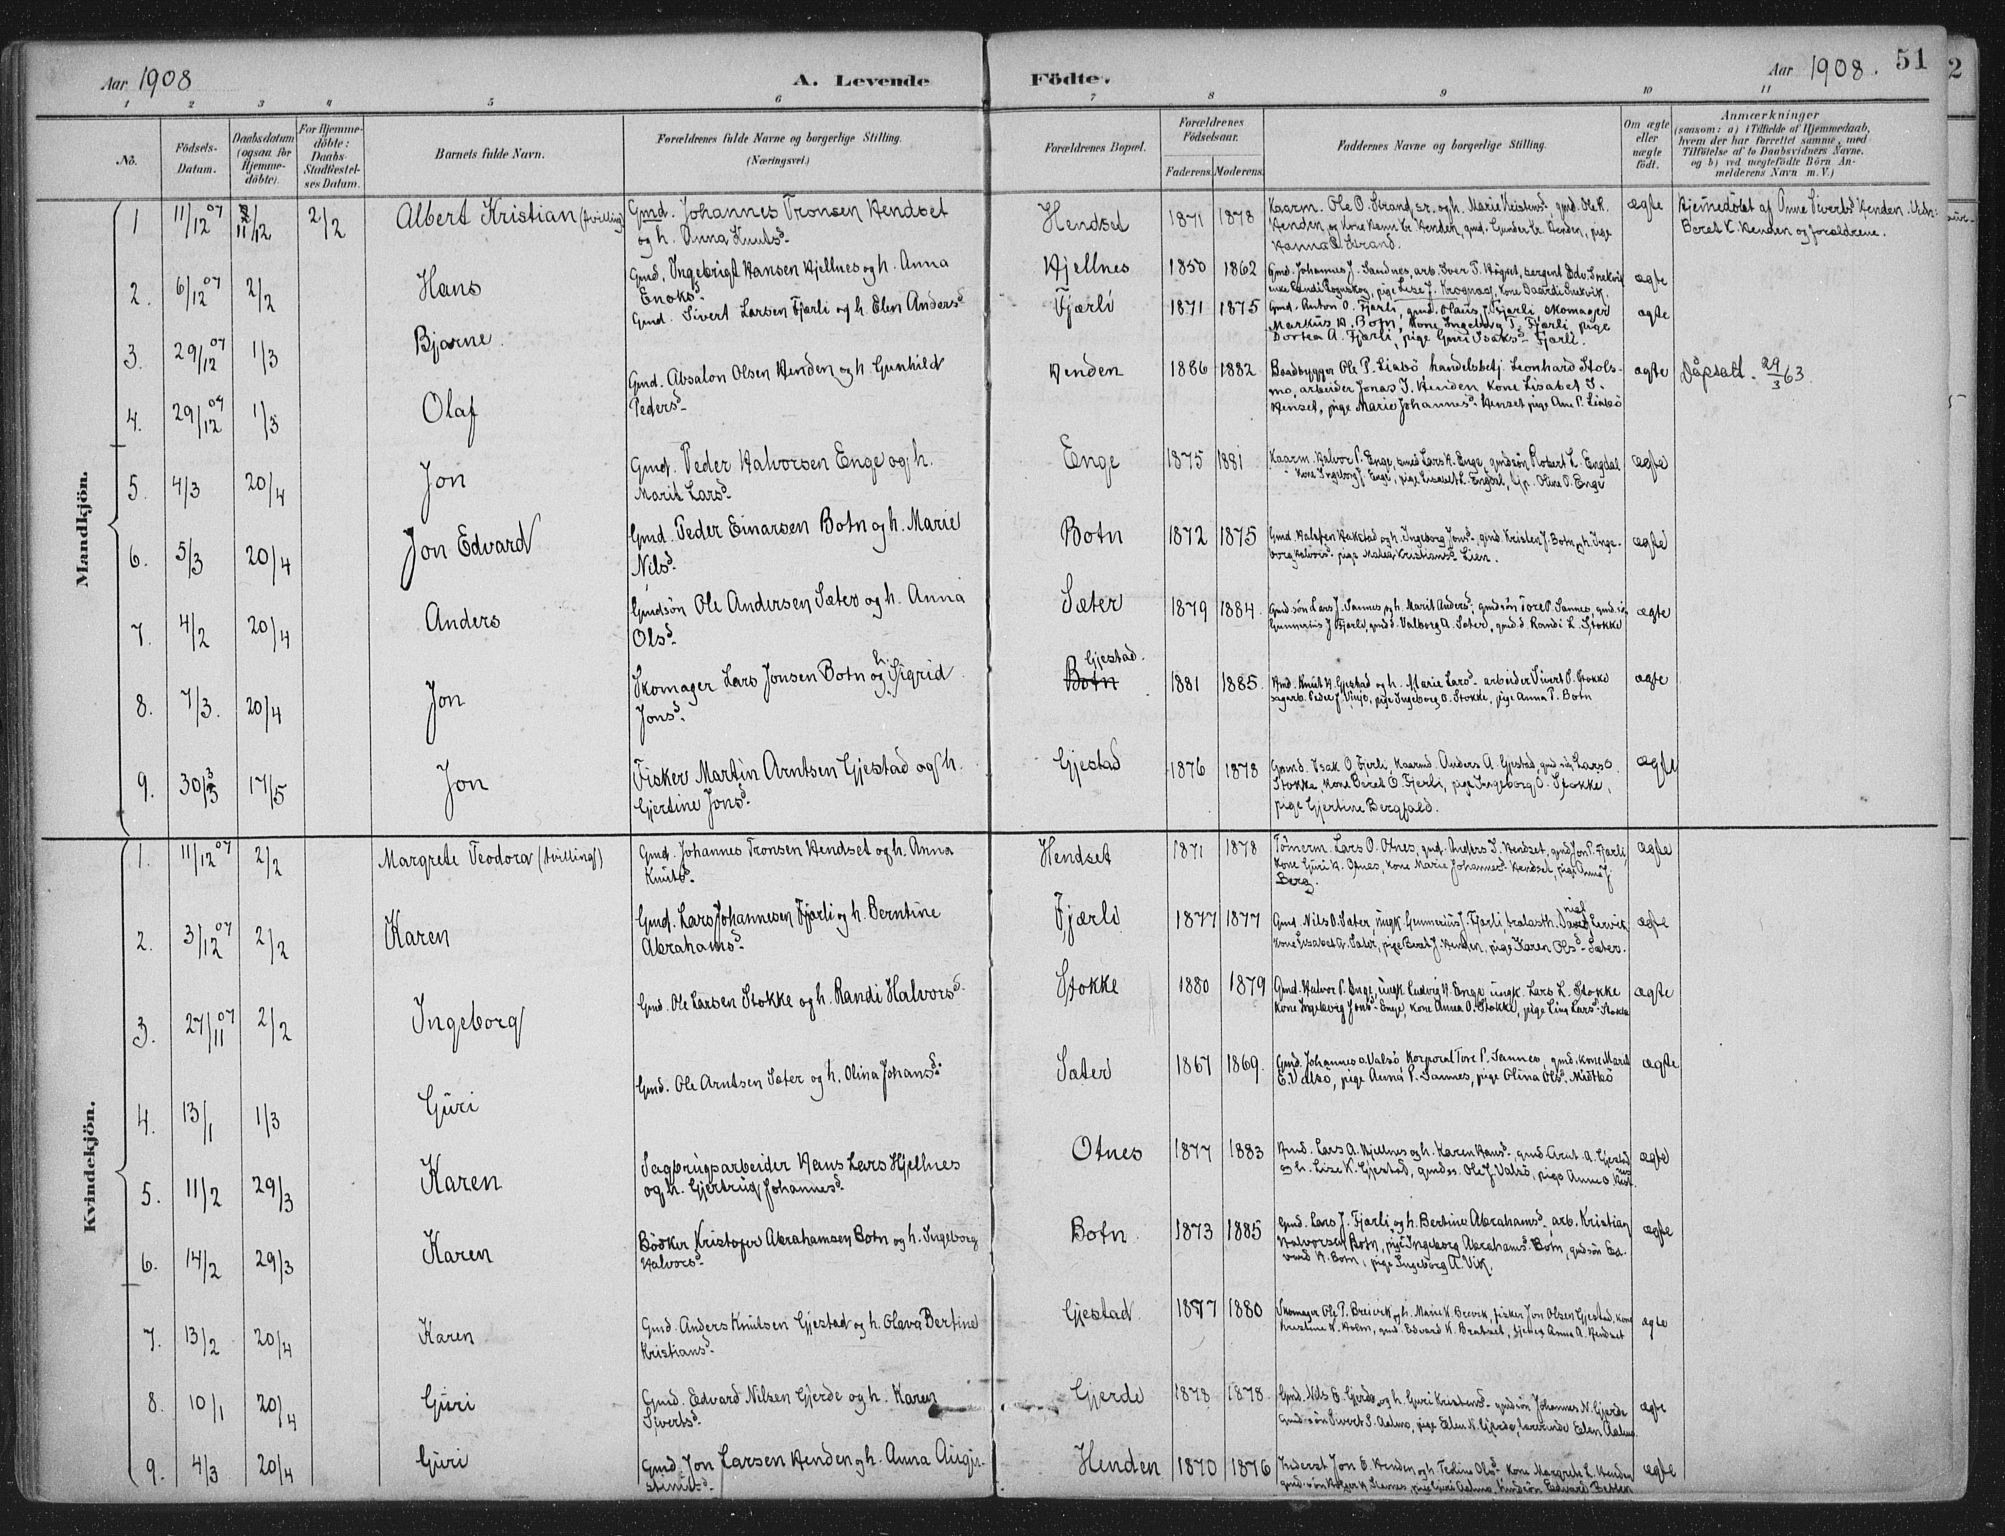 Aar 1908
A. Levende
Födte.
Aar 1908.
51
1 2 3 4 5 6 7 8 9 10 11
No.
Födsels-
Datum.
Daabsdatum
(ogsaa for
Hjemme-
döbte)
For Hjemme-
döbte:
Daabs-
Stadfæstel-
ses Datum.
Barnets fulde Navn.
Forældrenes fulde Navne og borgerlige Stilling.
(Næringsvei.)
Forældrenes Bopæl.
Forældrenes
Födselsaar.
Faderens. Moderens.
Faddernes Navne og borgerlige Stilling.
Om ægte
eller
uægte
födt.
Anmærkninger
(saasom: a) i Tilfælde af Hjemmedaab,
hvem der har forrettet samme, med
Tilföielse af to Daabsvidners Navne,
og b) ved uægtefödte Börn An-
melderens Navn m. V.)
Mandkjön.
1 11/12 07 11/12 2/2 Albert Kristian (tvilling) Gmd. Johannes Tronsen Hendset
og h. Anna Knutsd.
Hendset 1871 1878 Kaarm. Ole O. Strand, Marie gmd. Ole
Henden, Henden, gmd. Gunder Henden, pige
Hanna Strand.
ægte Hjemedöbt af Anne Sivertsd Henden.
Beret K. Henden og foræ­ldrene.
2. 6/12 07 2/2 Hans Gmd. Ingebrigt Hansen Hjellnes og h. Anna
Enoksd.
Hjellnes 1850 1862 Gmd. Johannes J. Sandnes, arb. Iver T. sergent Edv. Snekvig
pige Lise J. Krognæs, kone Snekvik.
ægte
3. 29/12 07 1/3 Bjarne. Gmd. Sivert Larsen Fjærli og h. Elen Andersd
Fjærli 1871 1875 Gmd. Anton O. Fjærli, gmd. Olaus J. Fjærli, skomager
Markus H. Botn, kone Ingeborg T. Fjærli, pige
Dortea A. Fjærli, pige Guri Isaksd. Fjærli.
ægte
4. 29/12 07 1/3 Olaf Gmd. Absalon Olsen Henden og h. Gunhild
Pedersd.
Henden 1886 1882 Baadbygger Ole P. Liabö handelsbetj. Leonhard Stols-
mo, arbeider Jonas I. Henden, kone Lisabet I.
Henset, pige Marie Johannesd. Henset pige Ane P. Liabö
ægte Dåpsatt. 29/3 63.
5. 4/3 20/4 Jon Gmd. Peder Halvorsen Enge og h.
Marit Larsd.
Enge 1875 1881 Kaarm. Halvor P. Enge, smed Lars K. Enge, gmdsön Robert L. Engdal
kone Ingeborg J. Enge, pige Lisabet L. Engdal, Oline O. Enge
ægte
6. 5/3 20/4 Jon Edvard Gmd. Peder Einarsen Botn og h. Marie
Nilsd.
Botn 1872 1875 Gmd. Halsten og h. Ingeborg Jonsd. gmd. Kristen J. Botn og h. Inge-
borg Halvorsd. pige Kristiansd. Lien.
ægte
7. 4/2 20/4 Anders Gmdsön Ole Andersen Sæter og h. Anna
Olsd.
Sæter 1879 1884. Gmd.sön Lars J. Sannes og h. Marit Andersd. gmdsön Tore P. Sannes, gmd.sön
Gunnerius J. Fjærli, gmd.d. Valborg A. Sæter, gmd.d. Randi L. Stokke
ægte
8. 7/3. 20/4 Jon Skomager Lars Jonsen Botn og h. Sigrid
Jonsd.
Gjestad.
Botn
1881 1885. Gmd. Knut H. Gjestad og h. Marie Larsd. arbeider Sivert O. Stokke
sagarb. Peder J. Vinje, pige Ingeborg O. Stokke, pige Anna P. Botn
ægte
9. 30/3 17/5 Jon Fisker Martin Arntsen Gjestad og h.
Gjertine Jonsd.
Gjestad 1876 1878 Gmd. Isak O. Fjerli, kaarmd. Anders A. Gjestad, Lars O.
Stokke, kone Beret O. Fjerli, pige Ingeborg O. Stokke,
pige Gjertine Bergfald.
ægte
Kvindekjön.
1. 11/12 07 2/2 Margrete Teodora (tvilling) Gmd. Johannes Tronsen Hendset og h. Anna
Knutsd.
Hendset 1871 1878 Tömerm. Lars O. Otnes, gmd. Anders I. Hendset, gmd Jon P. Fjærli,
kone Guri H. Otnes, kone Marie Johannesd. Hendset, pige Anna J.
Berg.
ægte
2. 3/12 07 2/2 Karen Gmd. Lars Johannesen Fjærli og h. Berntine
Abrahamsd.
Fjærli 1877 1877 Gmd. Nils O. Sæter, ungk. Gunnerius J. Fjærli, Lervik,
kone Lisabet A. Sæter, pige Beret J. Henden, pige Karen Olsd. Sæter.
ægte
3. 27/11 07 2/2 Ingeborg Gmd. Ole Larsen Stokke og h. Randi Halvorsd.
Stokke 1880 1879 Gmd. Halvor P. Enge, ungk. Ludvig H. Enge, ungk. Lars L. Stokke
kone Ingeborg Jonsd. Enge, kone Anna O. Stokke, pige Lina Larsd. Stokke
ægte
4. 13/1 1/3 Guri Gmd. Ole Arntsen Sæter og h. Olina Johansd.
Sæter 1867 1869. Gmd. Johannes O. Valsö, korporal Tore P. Sannes, gmd.kone Marit
E. Valsö, pige Anna P. Sannes, pige Olina Olsd.
ægte
5. 11/2 29/3 Karen Sagbrugsarbeider Hans Lars Hjellnes
og h. Gjertrud Johannesd.
Otnes 1877 1883 Gmd. Lars A. Hjellnes og h. Karen Hansd. gmd. Arnt A. Gjestad
og h. Lise K. Gjestad, gmds. Ole J. Valsö, pige Anne O.
ægte
6. 14/2 29/3 Karen Bödker Kristofer Abrahamsen Botn og h. Ingeborg
Halvorsd.
Botn. 1873 1885 Gmd. Lars J. Fjærli og h. Bertine Abrahamsd. arb. Kristian
Halvorsen Botn, pige Ingeborg Abrahamsd. Botn, gmdsön Ed-
vard H. Botn, pige Ingeborg A. Vik.
ægte
7. 13/2 20/4 Karen Gmd. Anders Knutsen Gjestad og h. Olava Bertine
Kristiansd.
Gjestad 1877 1880 Skomager Ole P. Breivik og h. Marie K. Brevik, fisker Jon Olsen Gjestad, kone
Kristine K. Holm, gmd. Edvard K. Bratset, tjener Anna A. Hendset
ægte
8. 10/1 20/4 Guri Gmd. Edvard Nilsen Gjerde og h. Karen
Sivertsd.
Gjerde 1878 1878. Gmd. Nils E. Gjerde og h. Guri Kristensd. gmdsön Johannes N. Gjerde
gmd.sön Sivert S. Aalmo, pige Elen N. Gjerde, lærerinde Elen Aalmo.
ægte
9. 4/3 20/4 Guri Gmd. Jon Larsen Henden og h. Anna Augu-
stinusd.
Henden 1870 1876 Inderst Jon E. Henden og h. Olsd. kone Margrete L. Henden
gmd.sön pige Guri Aalmo, Edvard
ægte